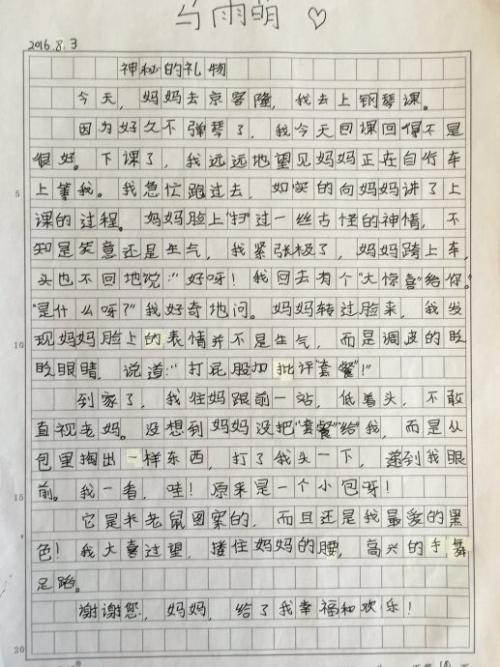 雨萌 ♡
2016.8.3
神秘的礼物
今天，妈妈去京客隆，我去上钢琴课。
因为好久不弹琴了，我今天回课回得不是
很好。下课了，我远远地望见妈妈正在自行车
上等我。我急忙跑过去，如实的向妈妈讲了上
课的过程。妈妈脸上"扫"过一丝古怪的神情，不
知是笑意还是生气，我紧张极了，妈妈跨上车，
头也不回地说："好呀！我回去有个"大惊喜"给你。"
"是什么呀？"我好奇地问。妈妈转过脸来，我发
现妈妈脸上的表情并不是生气，而是调皮的眨
眨眼睛，说道："打屁股加批评"套餐"！"
到家了，我往妈跟前一站，低着头，不敢
直视老妈。没想到妈妈没把"套餐"给我，而是从
包里掏出一样东西，打了我头一下，递到我眼
前。我一看，哇！原来是一个小包呀！
它是米老鼠图案的，而且还是我最爱的黑
色！我大喜过望，搂住妈妈的腰，高兴的手舞
足蹈。
谢谢您，妈妈，给了我幸福和欢乐！
5
10
15
20